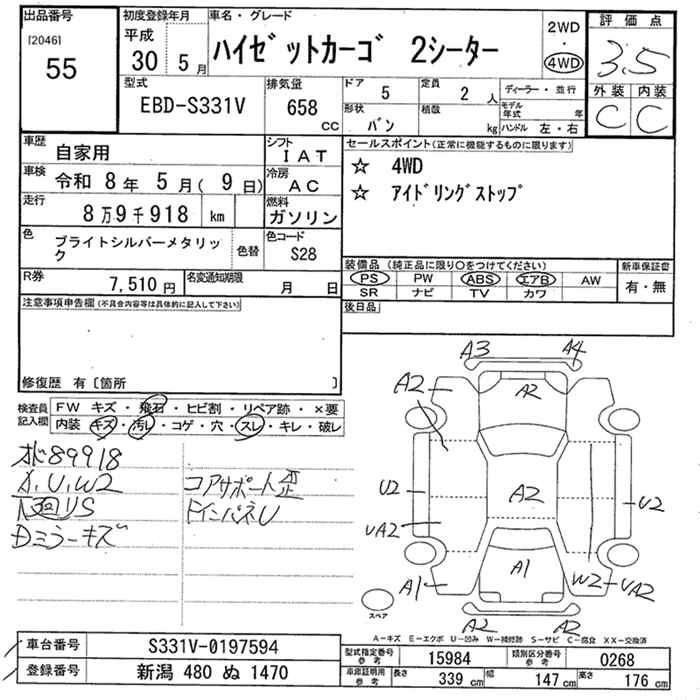 出品番号
[2046]
55
初度登録年月
平成
30 5月
車名・グレード
ハイゼットカーゴ 2シーター
2WD
・
4WD
評価点
3.5
外装 内装
C C
型式
EBD-S331V
排気量
658
cc
ドア
5
定員
2 人
ディーラー・並行
形状
バン
積載
kg
モデル年式 年
ハンドル 左・右
車歴
自家用
シフト
IAT
車検
令和 8年 5月( 9日)
冷房
AC
走行
8万9千918 km
燃料
ガソリン
色
ブライトシルバーメタリック
色替
色コード
S28
R券
7,510円
名変通知期限
月 日
セールスポイント(正常に機能するものに限ります)
☆ 4WD
☆ アイドリングストップ
装備品 (純正品に限り○をつけてください)
PS PW ABS エアB AW
SR ナビ TV カワ
新車保証書
有・無
後日品
注意事項申告欄(不具合内容等は具体的に記入して下さい)
修復歴 有〔箇所 〕
検査員記入欄
FW キズ・飛石・ヒビ割・リペア跡・×要
内装 キズ・汚レ・コゲ・穴・スレ・キレ・破レ
89918
U、W2
US
Dミラーキズ
コアサポート歪
インパネU
A3
A4
A2
A2
U2
A2
U2
UA2
A1
A1
W2
UA2
A2
A2
スペア
A-キズ E-エクボ U-凹み W-補修跡 S-サビ C-腐食 XX-交換済
車台番号
S331V-0197594
登録番号
新潟 480 ぬ 1470
型式指定番号
参考
15984
類別区分番号
参考
0268
車庫証明用
参考
長さ
339 cm
幅
147 cm
高さ
176 cm